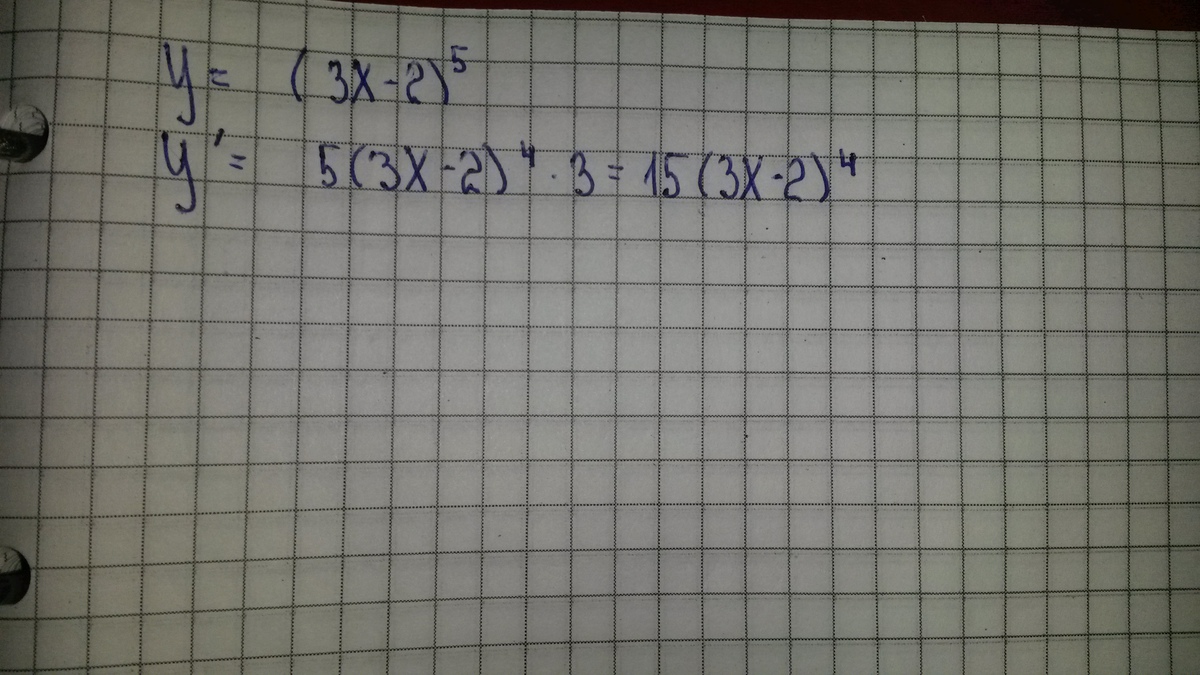 y = (3x-2)⁵
y' = 5(3x-2)⁴ · 3 = 15(3x-2)⁴